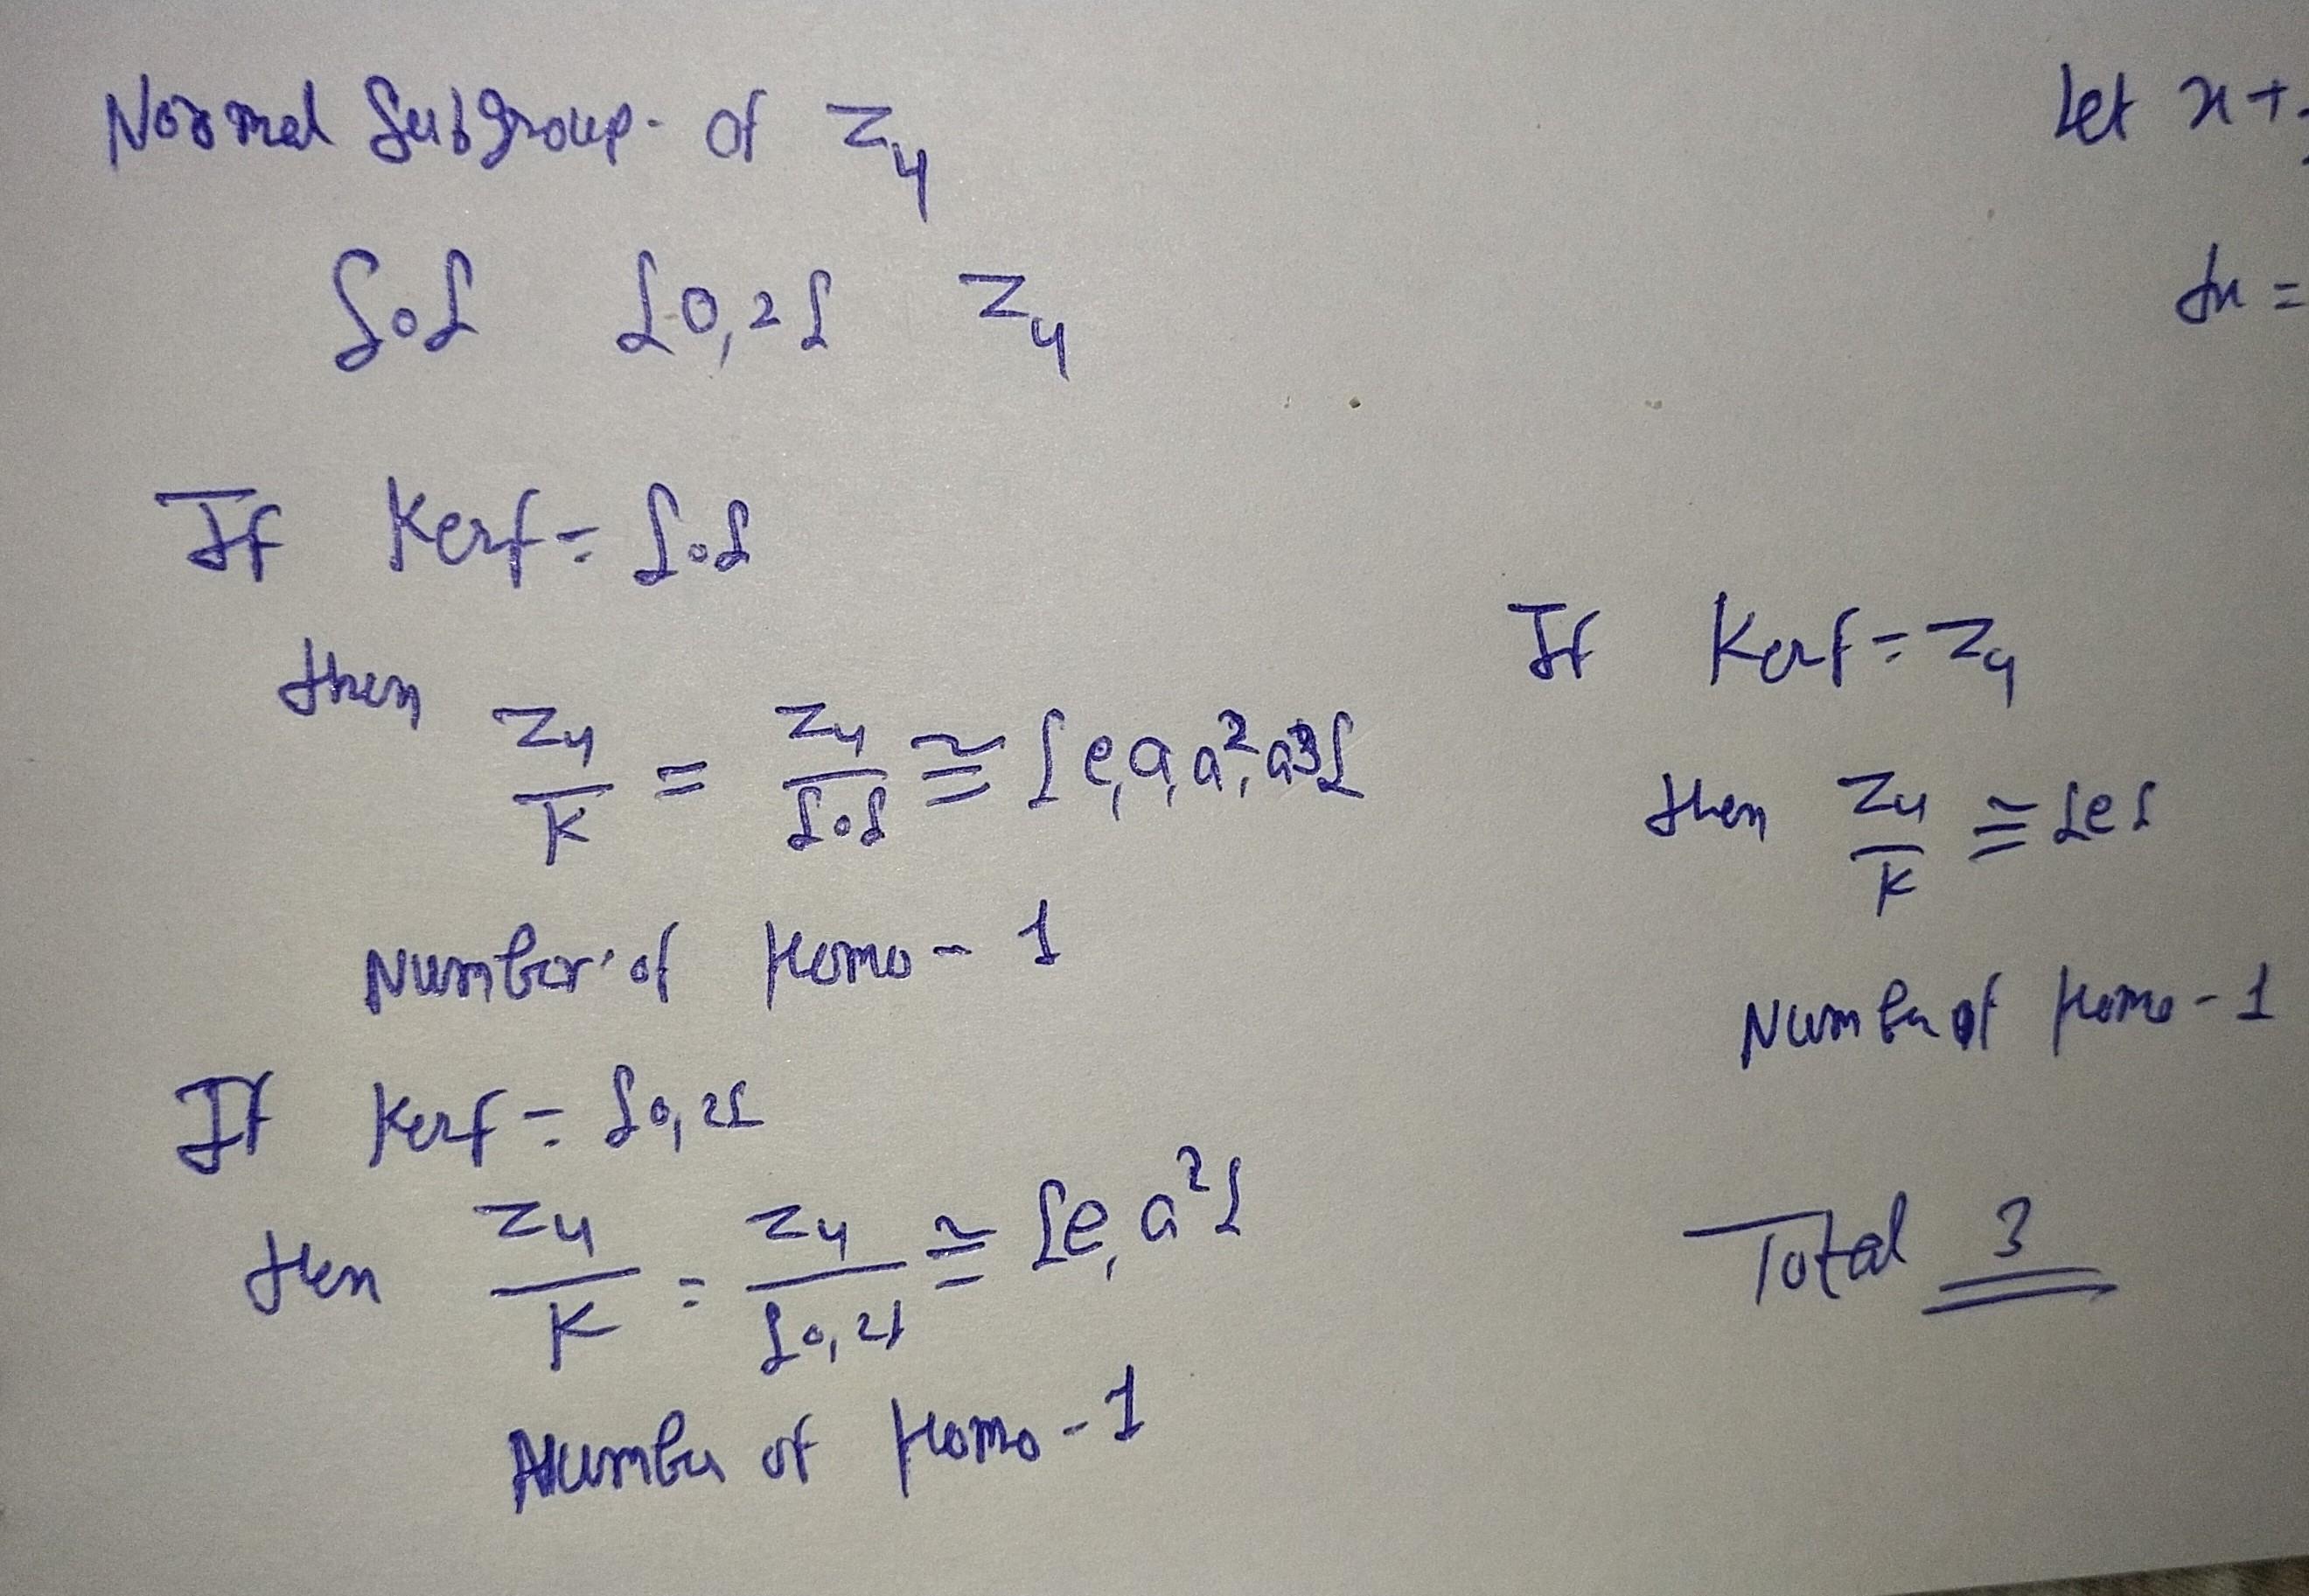 Normal Subgroup of Z₄
{0} {0,2} Z₄
If Kerf = {0}
then Z₄/K = Z₄/{0} ≅ {e,a,a²,a³}
Number of Homo - 1
If Kerf = {0,2}
then Z₄/K = Z₄/{0,2} ≅ {e,a²}
Number of Homo - 1
Let x+
If Kerf = Z₄
then Z₄/K ≅ {e}
Number of Homo - 1
Total 3